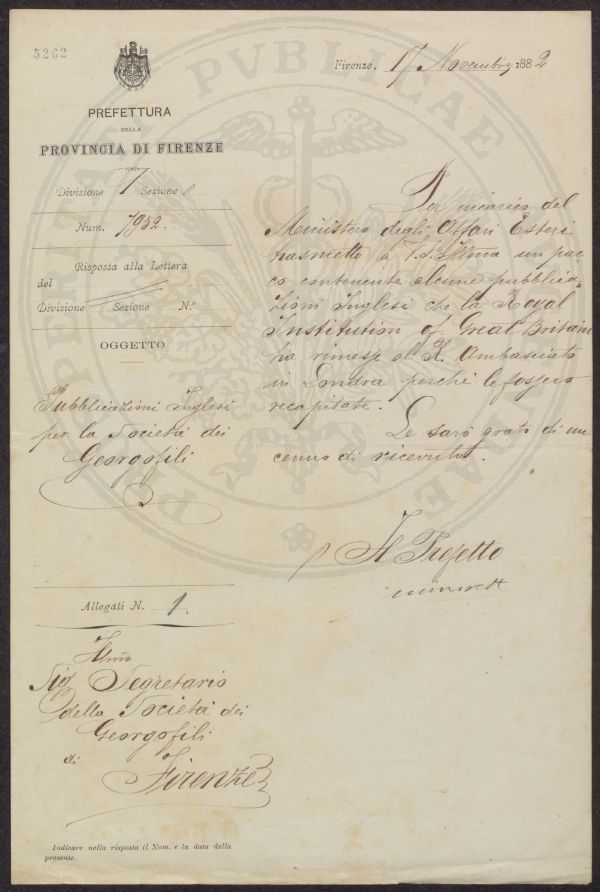 5262
Firenze, 17 Novembre 1882
PREFETTURA
DELLA
PROVINCIA DI FIRENZE
Divisione I Sezione
Num. 7952.
Risposta alla Lettera
del
Divisione Sezione N.º
OGGETTO
Pubblicazioni Inglesi
per la Società dei
Georgofili
Per incarico del
Ministero degli Affari Esteri
trasmetto a V. S. Illma un pac
co contenente alcune pubblica
zioni Inglesi che la Royal
Institution of Great Britain
ha rimesse al R. Ambasciata
in Londra perchè le fossero
recapitate.
Le sarò grato di un
cenno di ricevuta.
Il Prefetto
Allegati N. 1.
Illmo
Sig Segretario
della Società dei
Georgofili
di
Firenze
Indicare nella risposta il Num. e la data della
presente.
PUBLICAE